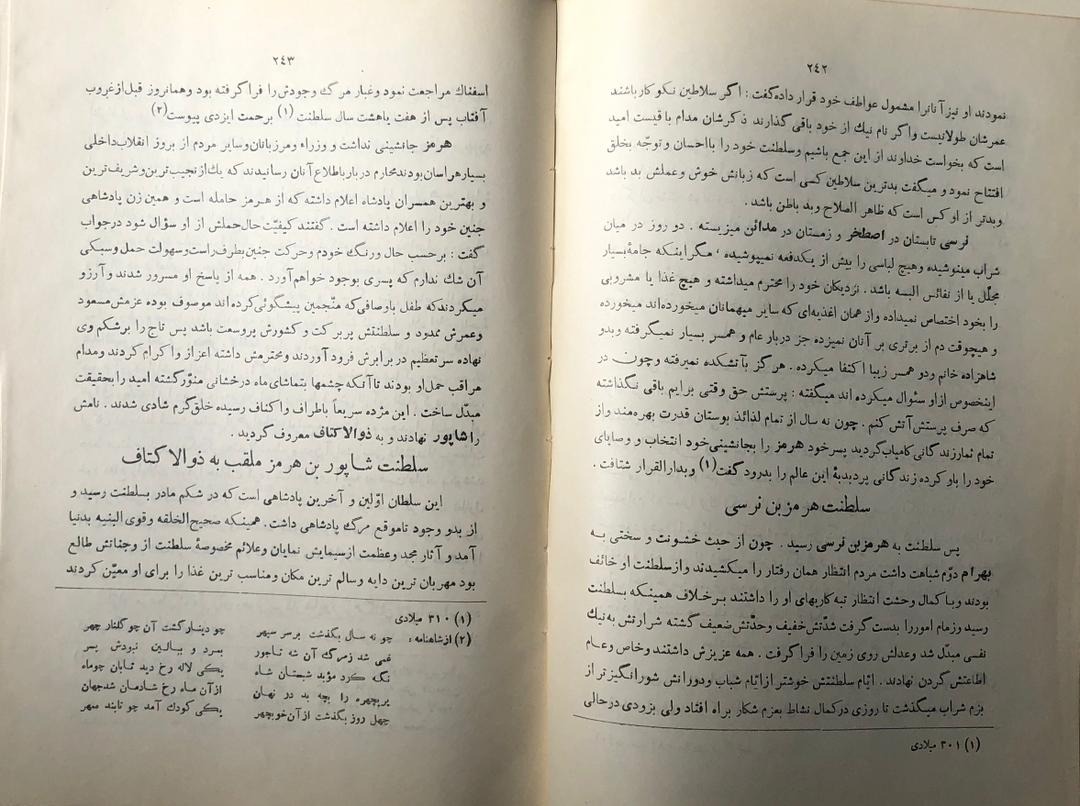 ۲٤۲
نمودند او نیز آنانرا مشمول عواطف خود قرار داده گفت : اگر سلاطین نکو کار باشند
عمرشان طولانیست و اگر نام نیک از خود باقی گذارند ذکرشان مدام باقیست امید
است که بخواست خداوند از این جمع باشیم وسلطنت خود را با احسان و توجّه بخلق
افتتاح نمود و میگفت بدترین سلاطین کسی است که زبانش خوش وعملش بد باشد
وبدتر از او کس است که ظاهر الصلاح وبد باطن باشد .
نرسی تابستان در اصطخر و زمستان در مدائن میزیسته . دو روز در میان
شراب مینوشیده وهیچ لباسی را بیش از یکدفعه نمیپوشیده ، مگر اینکه جامهٔ بسیار
مجلّل یا از نفائس البسه باشد . نزدیکان خود را محترم میداشته و هیچ غذا یا مشروبی
را بخود اختصاص نمیداده واز همان اغذیه‌ای که سایر میهمانان میخورده‌اند میخورده
و هیچوقت دم از برتری بر آنان نمیزده جز دربار عام و همسر بسیار نمیگرفته وبدو
شاهزاده خانم ودو همسر زیبا اکتفا میکرده . هرگز بآتشکده نمیرفته وچون در
اینخصوص از او سئوال میکرده اند میگفته : پرستش حق وقتی برایم باقی نگذاشته
که صرف پرستش آتش کنم . چون نه سال از تمام لذائذ بوستان قدرت بهره‌مند واز
تمام ثمار زندگانی کامیاب گردید پسر خود هرمز را بجانشینی خود انتخاب و وصایای
خود را باو کرده زندگانی پردبدبهٔ این عالم را بدرود گفت(۱) وبدار القرار شتافت .
سلطنت هرمز بن نرسی
پس سلطنت به هرمز بن نرسی رسید . چون از حیث خشونت و سختی به
بهرام دوّم شباهت داشت مردم انتظار همان رفتار را میکشیدند واز سلطنت او خائف
بودند وبا کمال وحشت انتظار تبه کاریهای او را داشتند برخلاف همینکه بسلطنت
رسید وزمام امور را بدست گرفت شدّتش خفیف وحدّتش ضعیف گشته شرارتش به نیک
نفسی مبدّل شد وعدلش روی زمین را فرا گرفت . همه عزیزش داشتند وخاص وعام
اطاعتش گردن نهادند . ایّام سلطنتش خوشتر از ایّام شباب ودورانش شورانگیزتر از
بزم شراب میگذشت تا روزی در کمال نشاط بعزم شکار براه افتاد ولی بزودی درحالی
(۱) ۳۰۱ میلادی
۲٤۳
اسفناک مراجعت نمود وغبار مرگ وجودش را فرا گرفته بود وهمانروز قبل از غروب
آفتاب پس از هفت یا هشت سال سلطنت (۱) برحمت ایزدی پیوست(۲)
هرمز جانشینی نداشت و وزراء ومرزبانان وسایر مردم از بروز انقلاب داخلی
بسیار هراسان بودند محارم دربار باطلاع آنان رسانیدند که یک از نجیب ترین وشریف ترین
و بهترین همسران پادشاه اعلام داشته که از هرمز حامله است و همین زن پادشاهی
جنین خود را اعلام داشته است . گفتند کیفیّت حال حملش از او سؤال شود در جواب
گفت : برحسب حال ورنگ خودم وحرکت جنین بطرف راست وسهولت حمل وسبکی
آن شک ندارم که پسری بوجود خواهم آورد . همه از پاسخ او مسرور شدند و آرزو
میکردند که طفل باوصافی که منّجمین پیشگوئی کرده اند موصوف بوده عزمش مسعود
وعمرش ممدود و سلطنتش پر برکت و کشورش پروسعت باشد پس تاج را برشکم وی
نهاده سر تعظیم در برابرش فرود آوردند ومحترمش داشته اعزاز واکرام کردند ومدام
مراقب حمل او بودند تا آنکه چشمها بتماشای ماه درخشانی منوّر گشته امید را بحقیقت
مبدّل ساخت . این مژده سریعاً باطراف واکناف رسیده خلق گرم شادی شدند . نامش
را شاپور نهادند و به ذوالاکتاف معروف گردید .
سلطنت شاپور بن هرمز ملقب به ذوالاکتاف
این سلطان اوّلین و آخرین پادشاهی است که در شکم مادر بسلطنت رسید و
از بدو وجود تا موقع مرگ پادشاهی داشت . همینکه صحیح الخلقه وقوی البنیه بدنیا
آمد و آثار مجد وعظمت از سیمایش نمایان وعلائم مخصوصهٔ سلطنت از وجناتش طالع
بود مهربان ترین دایه وسالم ترین مکان ومناسب ترین غذا را برای او معیّن کردند
(۱) ۳۱۰ میلادی
(۲) از شاهنامه : چو نه سال بگذشت برسر سپهر چو دینار گشت آن چو گلنار چهر
غمی شد زمرگ آن شه تاجور بمرد و ببالین نبودش پسر
نگه کرد مؤبد شبستان شاه یکی لاله رخ دید تابان چوماه
پریچهره را بچه بد در نهان از آن ماه رخ شادمان شد جهان
چهل روز بگذشت از آن خوبچهر یکی کودک آمد چو تابنده مهر